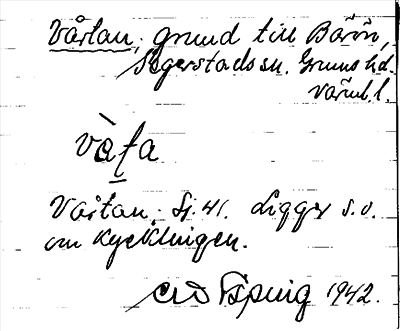 Vårtan, grund till Bärön,
Segerstads sn. Grums hd.
Värml. l.
våṭa
Vårtan. Sj. 41. Ligger s.o.
om Kycklingen.
1942.